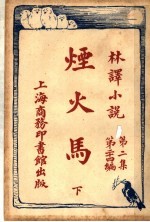 林譯小説
第二集
第二十四編
煙火馬
下
上海商務印書館出版